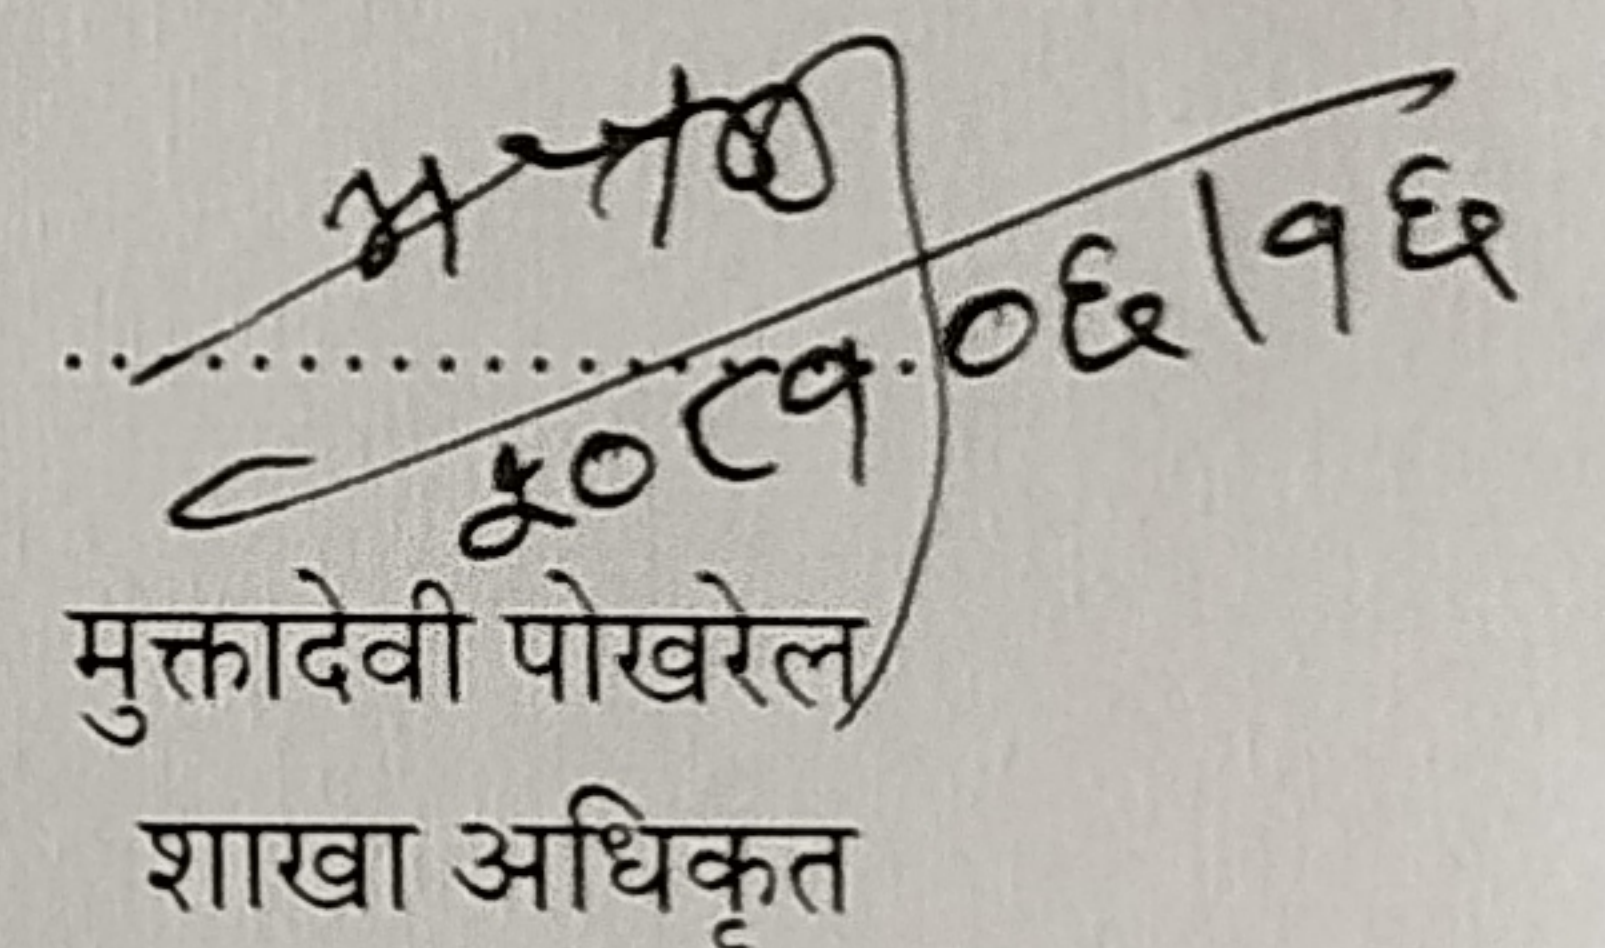 २०८१.०६।१६
मुक्तादेवी पोखरेल
शाखा अधिकृत